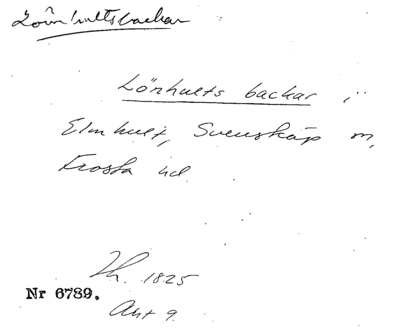 Lönhultsbackar
Lönhults backar i
Elmhult, Svensköp sn,
Frosta hd
Th. 1825
Nr 6789.
Akt 9